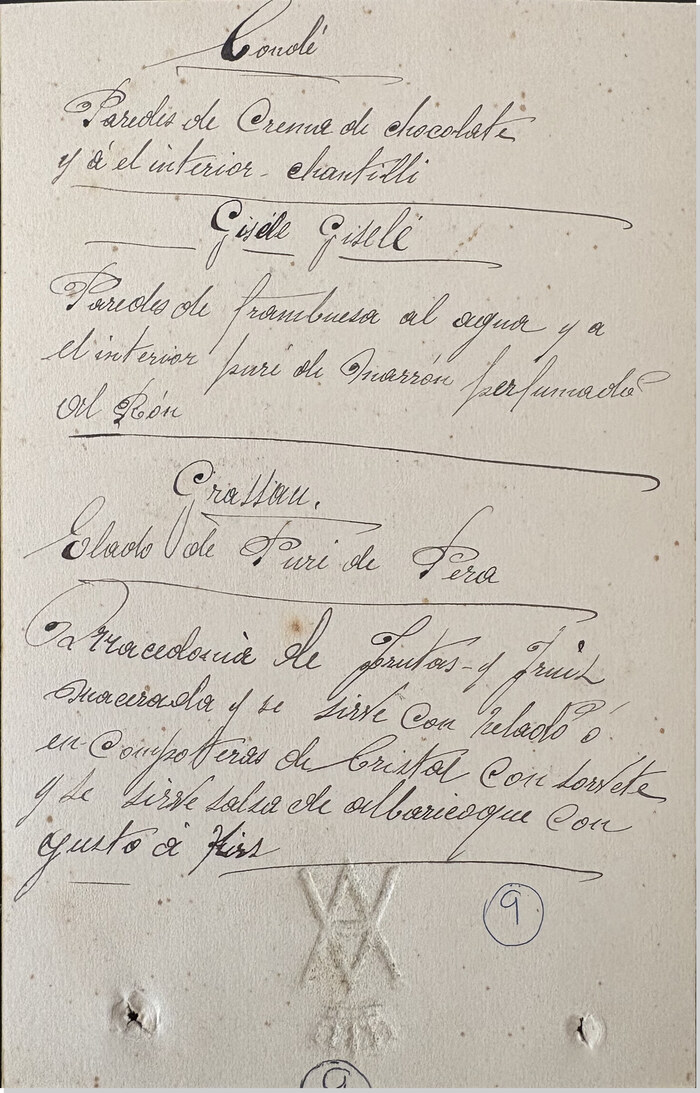 Condé
Paredes de Crema de chocolate
y á el interior - chantilli
Giséle Giselë
Paredes de frambuesa al agua y a
el interior puré de marrón perfumado
al Rón
Grassau.
Elado de Puré de Pera
Macedonia de Frutas - y Fruit
macerada y se sirve con helado ó
en Compoteras de Cristal con sorvete
y se sirve salsa de albaricoque con
gusto á Kirs
9